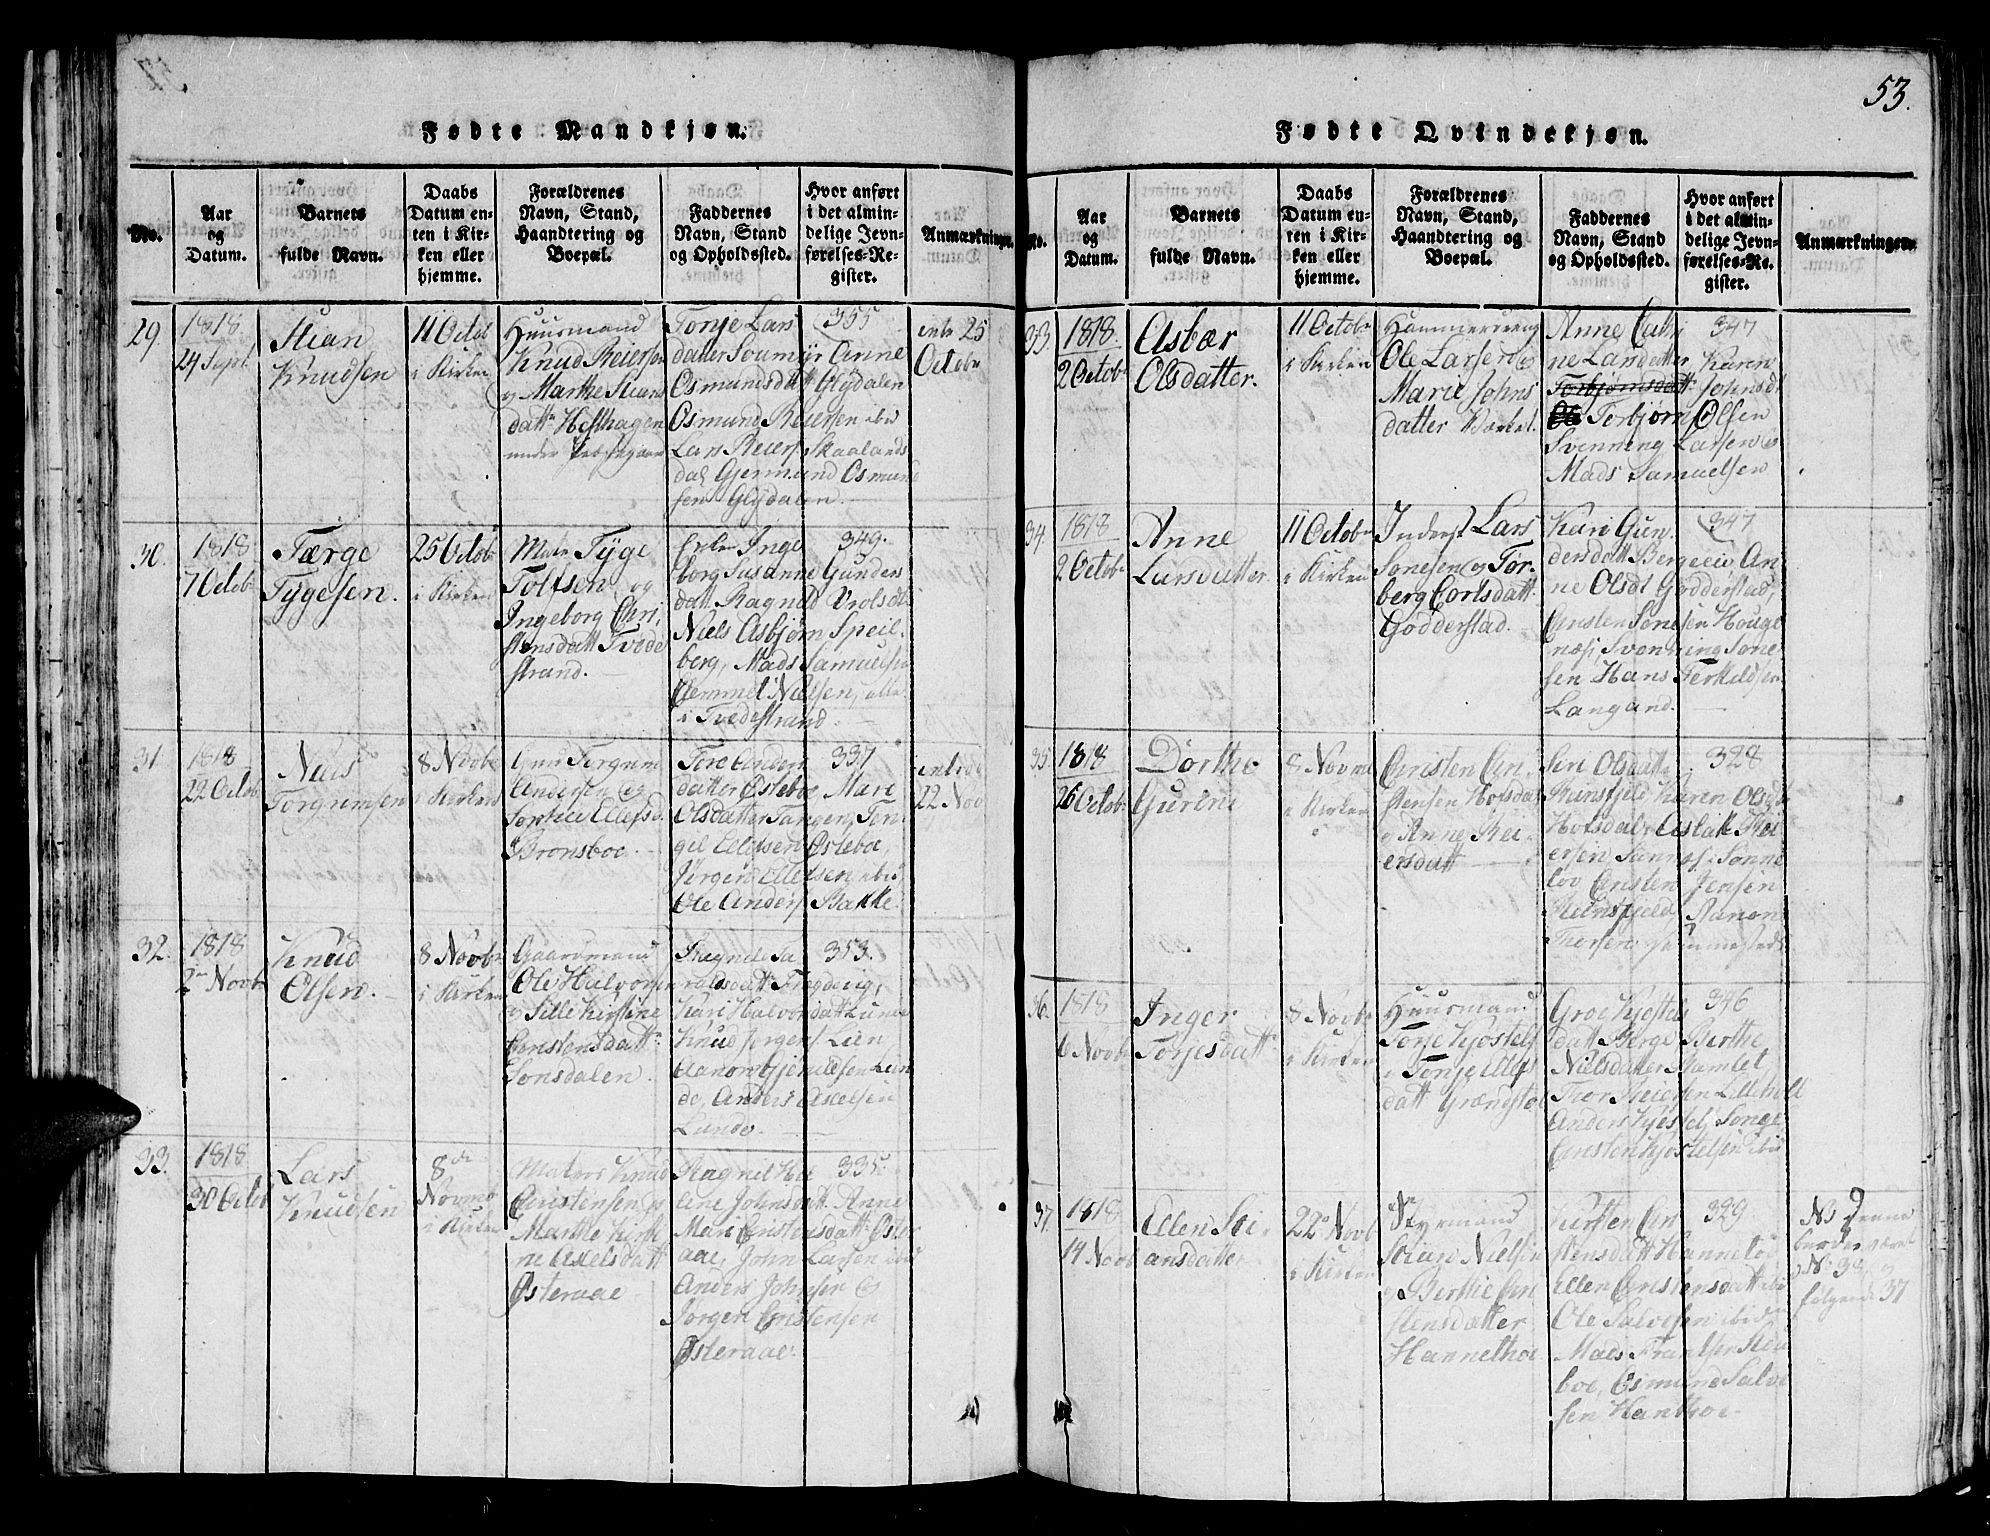 53.
Fødte Mandkjøn.
No.
Aar
og
Datum.
Barnets
fulde Navn.
Daabs
Datum en-
ten i Kir-
ken eller
hjemme.
Forældrenes
Navn, Stand,
Haandtering og
Boepæl.
Faddernes
Navn, Stand
og Opholdssted.
Hvor anført
i det almin-
delige Jevn-
førelses-Re-
gister.
Anmærkninger.
29.
1818
24 Sept.
Stian
Knudsen
11 Octob
i Kirken
Huusmand
Knud Reiersen
og Marthe Stians
datt Hesthagen
under
Tonje Lars
datter
Anne
Osmundsdatt Glydalen
Osmund Reiersen
Lars Reiers Skaalands
dal Gjermund Osmund
sen Glydalen
355
25
Octobr
30.
1818
7 Octob
Færge
Tygesen.
25 Octob
i Kirken
Tyge
Tolfsen og
Ingeborg Chri
stensdatt Tvede
strand.
Inge
borg Susanne Gunders
datt Ragnild Urolsdt
Niels Asbjørn Speil-
berg, Mads Samuelsen
Nielsen, alle
i Tvedestrand.
349.
31.
1818
22 Octob
Niels
Torgrimsen
8 Novbr
i Kirken
Andersen og
Ellefsd.
Bronsboe
Tore Anders
datter Østeboe Mari
Olsdatter Tangen, Ten-
gil Ellefsen Østeboe,
Jørgen Ellefsen ibid
Ole Anders Bakke.
337
22 Nov
32.
1818
2 Novb
Knud
Olsen.
8 Novbr
i Kirken
Gaardmand
Ole Halvorsen
og Sille Kirstine
Christensdatt
Sonsdalen.
Ragnild Ta
raldsdatt
Kari Halvorsdatt Lunde
Knud Jørgens. Lien
Aanon Gjerulfsen Lun
de, Anders Axelsen
Lunde.
353.
33.
1818
30 Octob
Lars
Knudsen
8de
Novmb
i Kirken
Matros Knud
Christensen og
Marthe Kirsti
ne Axelsdatt
Østeraae
Ragnil Hel
ene Johnsdatt. Anne
Mari Christensdatt Øster
aae, John Larsen ibid
Anders Johnsen og
Jørgen Christensen
Østeraae.
335.
Fødte Qvindekjøn.
No.
Aar
og
Datum.
Barnets
fulde Navn.
Daabs
Datum en-
ten i Kir-
ken eller
hjemme.
Forældrenes
Navn, Stand,
Haandtering og
Boepæl.
Faddernes
Navn, Stand
og Opholdssted.
Hvor anført
i det almin-
delige Jevn-
førelses-Re-
gister.
Anmærkninger.
33.
1818.
2 Octobr
Asbær
Olsdatter.
11 Octobr
i Kirken
Hammerdreng
Ole Larsen og
Marie Johns
datter Værket.
Anne Cath
ne Larsdatter
Karen
Torbjørnsdatt Johnsd
Torbjørn Olsen
Svenning Larsen og
Mads Samuelsen
347
34.
1818
2 Octobr
Anne
Larsdatter.
11 Octobr
i Kirken
Inderst Lars
Sonesen og Tor-
berg Carlsdatt.
Godderstad.
Kari Gun-
dersdatt Bergeie An-
ne Olsdt Godderstad,
Christen Sonesen Houge
næs, Svenning Sone
sen Hans Terkildsen
Langand.
347
35
1818
26 Octobr
Dorthe
Gurine
8 Novmb
i Kirken
Christen Chri-
stensen Hofsdal
og Anne Rei-
ersdatt
Siri Olsdatt
Ramsfjeld Karen Olsdt
Hofsdal, Aslak Rei-
ersen Sannes. Sonne
lov Christen Jensen
Aanon
Thorsen
328
36.
1818
6 Novbr
Inger
Torjesdatt
8 Novbr
i Kirken
Huusmand
Torje Kjøstels
og Tonje Ellefs
datt Grændstøl
Groe Kjøstels
datt Berge, Berthe
Nielsdatter Hamlet,
Thor Reiersen Lilleholt
Anders Kjøstels, Songe
Christen Kjøstelsen ibid
346
37.
1818
14 Novb
Ellen Sti-
ansdatter
22de Novb
i Kirken
Styrmand
Stian Nielsen
og Berthe Chri
stensdatter
Hannethoe
Kirsten Chri
stensdatt Hannetoe
Ellen Christensdatt ibid
Ole Salvesen ibid
Mads Frantsen
boe, Osmund Salve
sen Hanthoe
329
NB denne
burde været
No 38, og
følgende 37